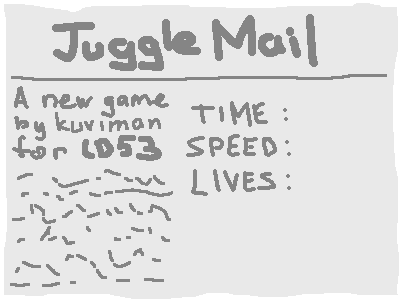 Juggle Mail
A new game
by kuviman
for LD53
TIME :
SPEED :
LIVES :